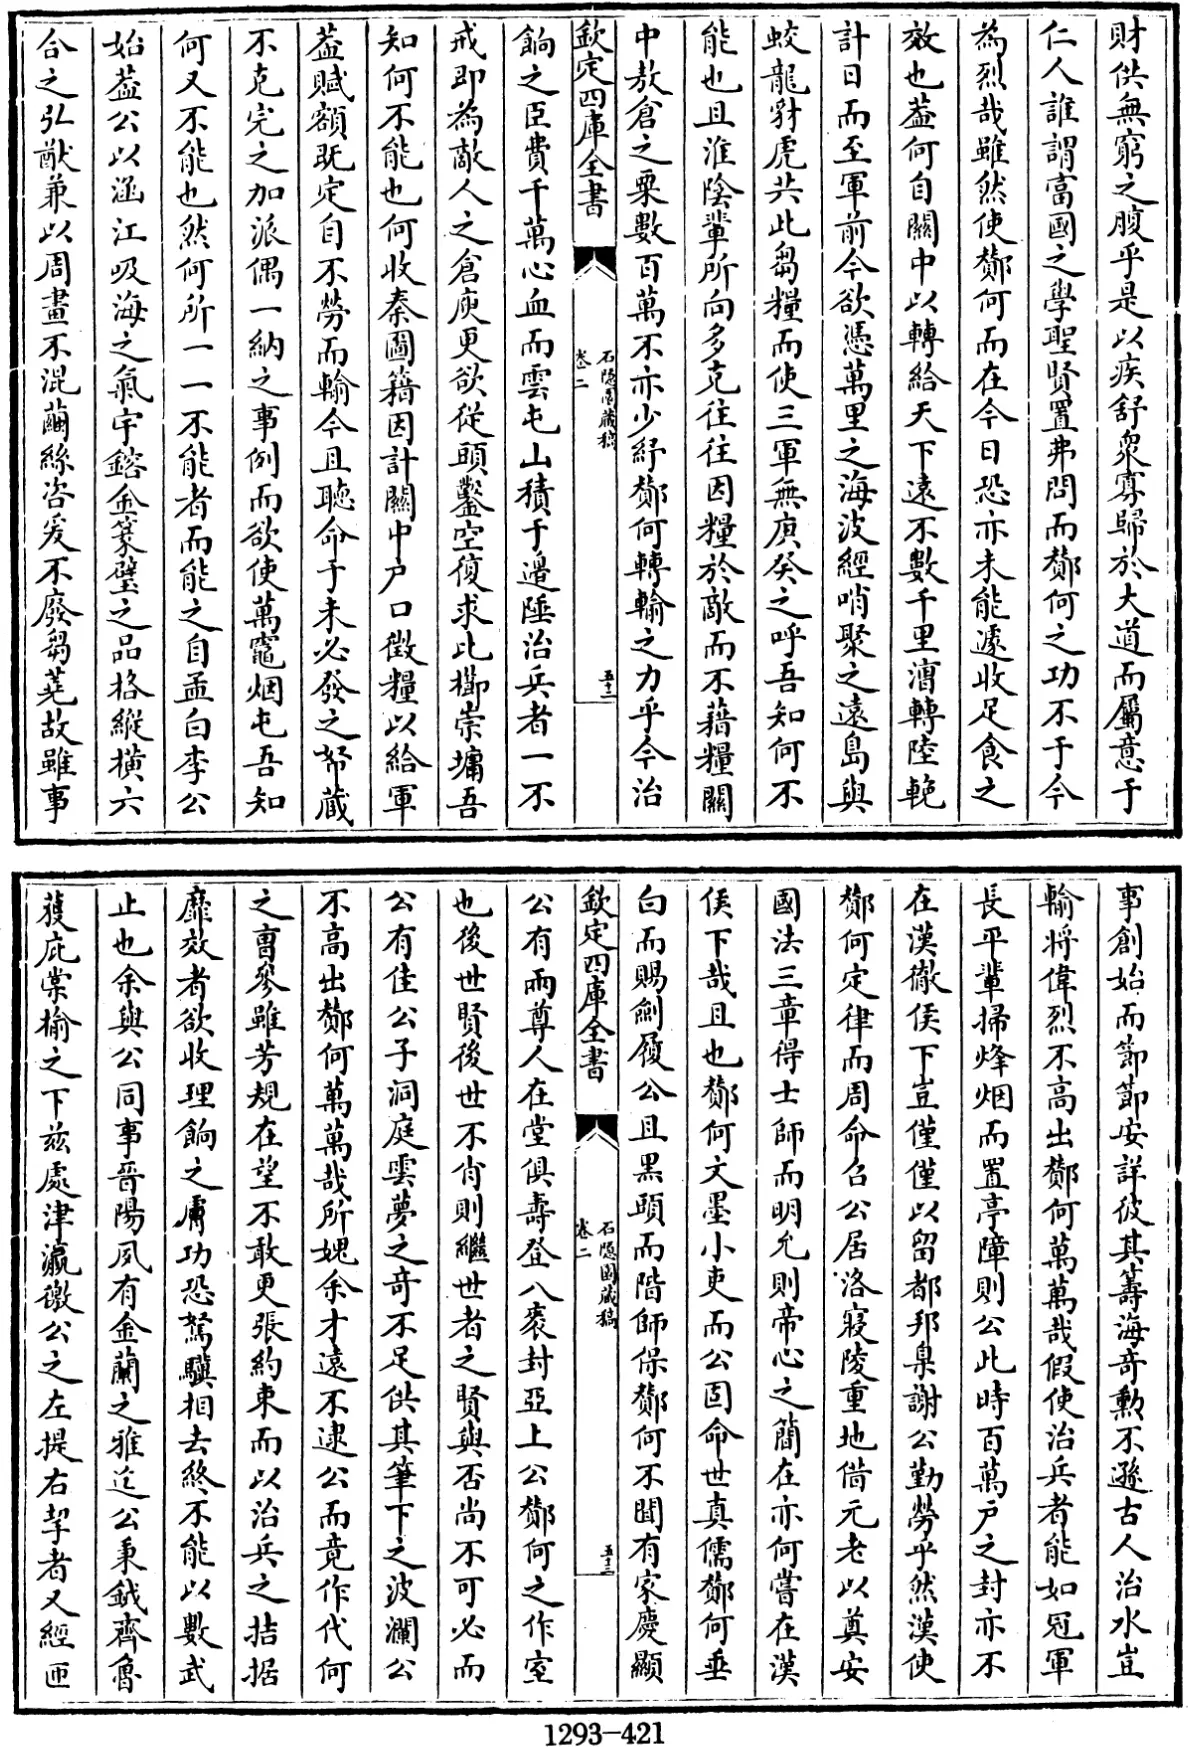 財供無窮之腹乎是以疾舒衆寡歸於大道而屬意于
仁人誰謂富國之學聖賢置弗問而酇何之功不于今
為烈哉雖然使酇何而在今日恐亦未能遽收足食之
效也葢何自關中以轉給天下遠不數千里漕轉陸輓
計日而至軍前今欲憑萬里之海波經哨聚之遠島與
蛟龍豺虎共此芻糧而使三軍無庚癸之呼吾知何不
能也且淮陰輩所向多克往往因糧於敵而不藉糧關
中敖倉之粟數百萬不亦少紓酇何轉輸之力乎今治
欽定四庫全書
石隱園藏稿
卷二
五十二
餉之臣費千萬心血而雲屯山積于邊陲治兵者一不
戒即為敵人之倉庾更欲從頭鑿空復求此櫛崇墉吾
知何不能也何收秦圖籍因計關中户口徵糧以給軍
葢賦額既定自不勞而輸今且聽命于未必發之帑藏
不克完之加派偶一納之事例而欲使萬竈烟屯吾知
何又不能也然何所一一不能者而能之自孟白李公
始葢公以涵江吸海之氣宇鎔金篆璧之品格縱横六
合之弘猷兼以周畫不混繭絲咨爰不廢芻蕘故雖事
事創始而節節安詳彼其籌海奇勲不遜古人治水豈
輸將偉烈不高出酇何萬萬哉假使治兵者能如冠軍
長平輩掃烽烟而置亭障則公此時百萬户之封亦不
在漢徹侯下豈僅僅以留都邦臬謝公勤勞乎然漢使
酇何定律而周命召公居洛寢陵重地借元老以奠安
國法三章得士師而明允則帝心之簡在亦何嘗在漢
侯下哉且也酇何文墨小吏而公固命世真儒酇何垂
白而賜劍履公且黑頭而階師保酇何不聞有家慶顯
欽定四庫全書
石隱園藏稿
卷二
五十三
公有兩尊人在堂俱壽登八袠封亞上公酇何之作室
也後世賢後世不肖則繼世者之賢與否尚不可必而
公有佳公子洞庭雲夢之奇不足供其筆下之波瀾公
不高出酇何萬萬哉所媿余才遠不逮公而竟作代何
之曺參雖芳規在望不敢更張約束而以治兵之拮据
靡效者欲收理餉之膚功恐駑驥相去終不能以數武
止也余與公同事晉陽夙有金蘭之雅迄公秉鉞齊魯
獲庇棠榆之下兹處津瀛徼公之左提右挈者又經匝
1293-421